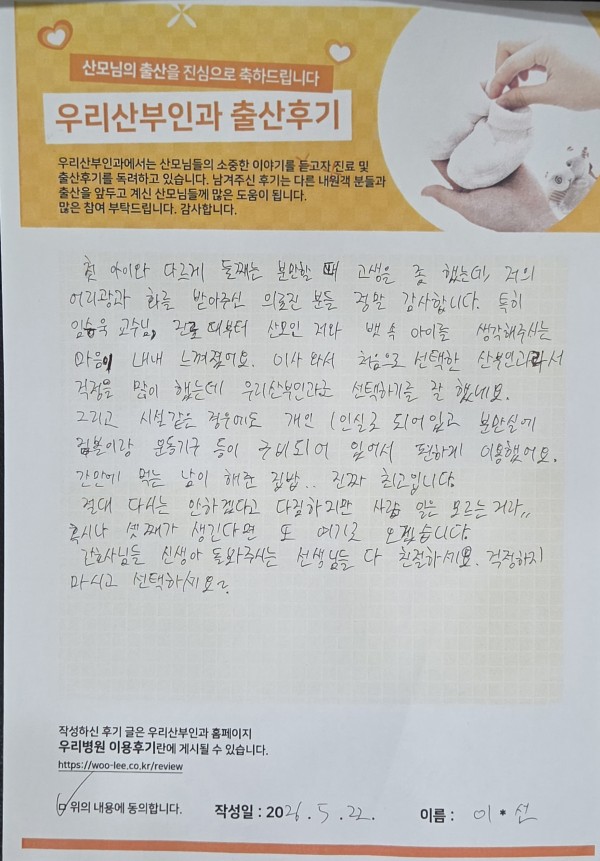 산모님의 출산을 진심으로 축하드립니다
우리산부인과 출산후기
우리산부인과에서는 산모님들의 소중한 이야기를 듣고자 진료 및
출산후기를 독려하고 있습니다. 남겨주신 후기는 다른 내원객 분들과
출산을 앞두고 계신 산모님들께 많은 도움이 됩니다.
많은 참여 부탁드립니다. 감사합니다.
첫 아이와 다르게 둘째는 분만할 때 고생을 좀 했는데, 저의
어리광과 화를 받아주신 의료진 분들 정말 감사합니다. 특히
임승욱 교수님, 진료 때부터 산모인 저와 뱃속 아이를 생각해주시는
마음이 내내 느껴졌어요. 이사 와서 처음으로 선택한 산부인과라서
걱정을 많이 했는데 우리산부인과로 선택하기를 잘 했네요.
그리고 시설같은 경우에도 개인 1인실로 되어있고 분만실에
짐볼이랑 운동기구 등이 구비되어 있어서 편하게 이용했어요.
간만에 먹는 남이 해준 집밥.. 진짜 최고입니다.
절대 다시는 안하겠다고 다짐하지만 사람 일은 모르는거라,,
혹시나 셋째가 생긴다면 또 여기로 오겠습니다.
간호사님들 신생아 돌봐주시는 선생님들 다 친절하세요. 걱정하지
마시고 선택하세요~
작성하신 후기 글은 우리산부인과 홈페이지
우리병원 이용후기란에 게시될 수 있습니다.
https://woo-lee.co.kr/review
위의 내용에 동의합니다. 작성일 : 2026. 5. 22. 이름 : 이*선